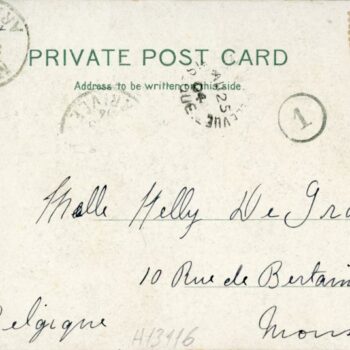 PRIVATE POST CARD
Address to be written on this side.
1
Mlle Nelly De Gra
10 Rue de Bertain
Belgique
Mons
H13916